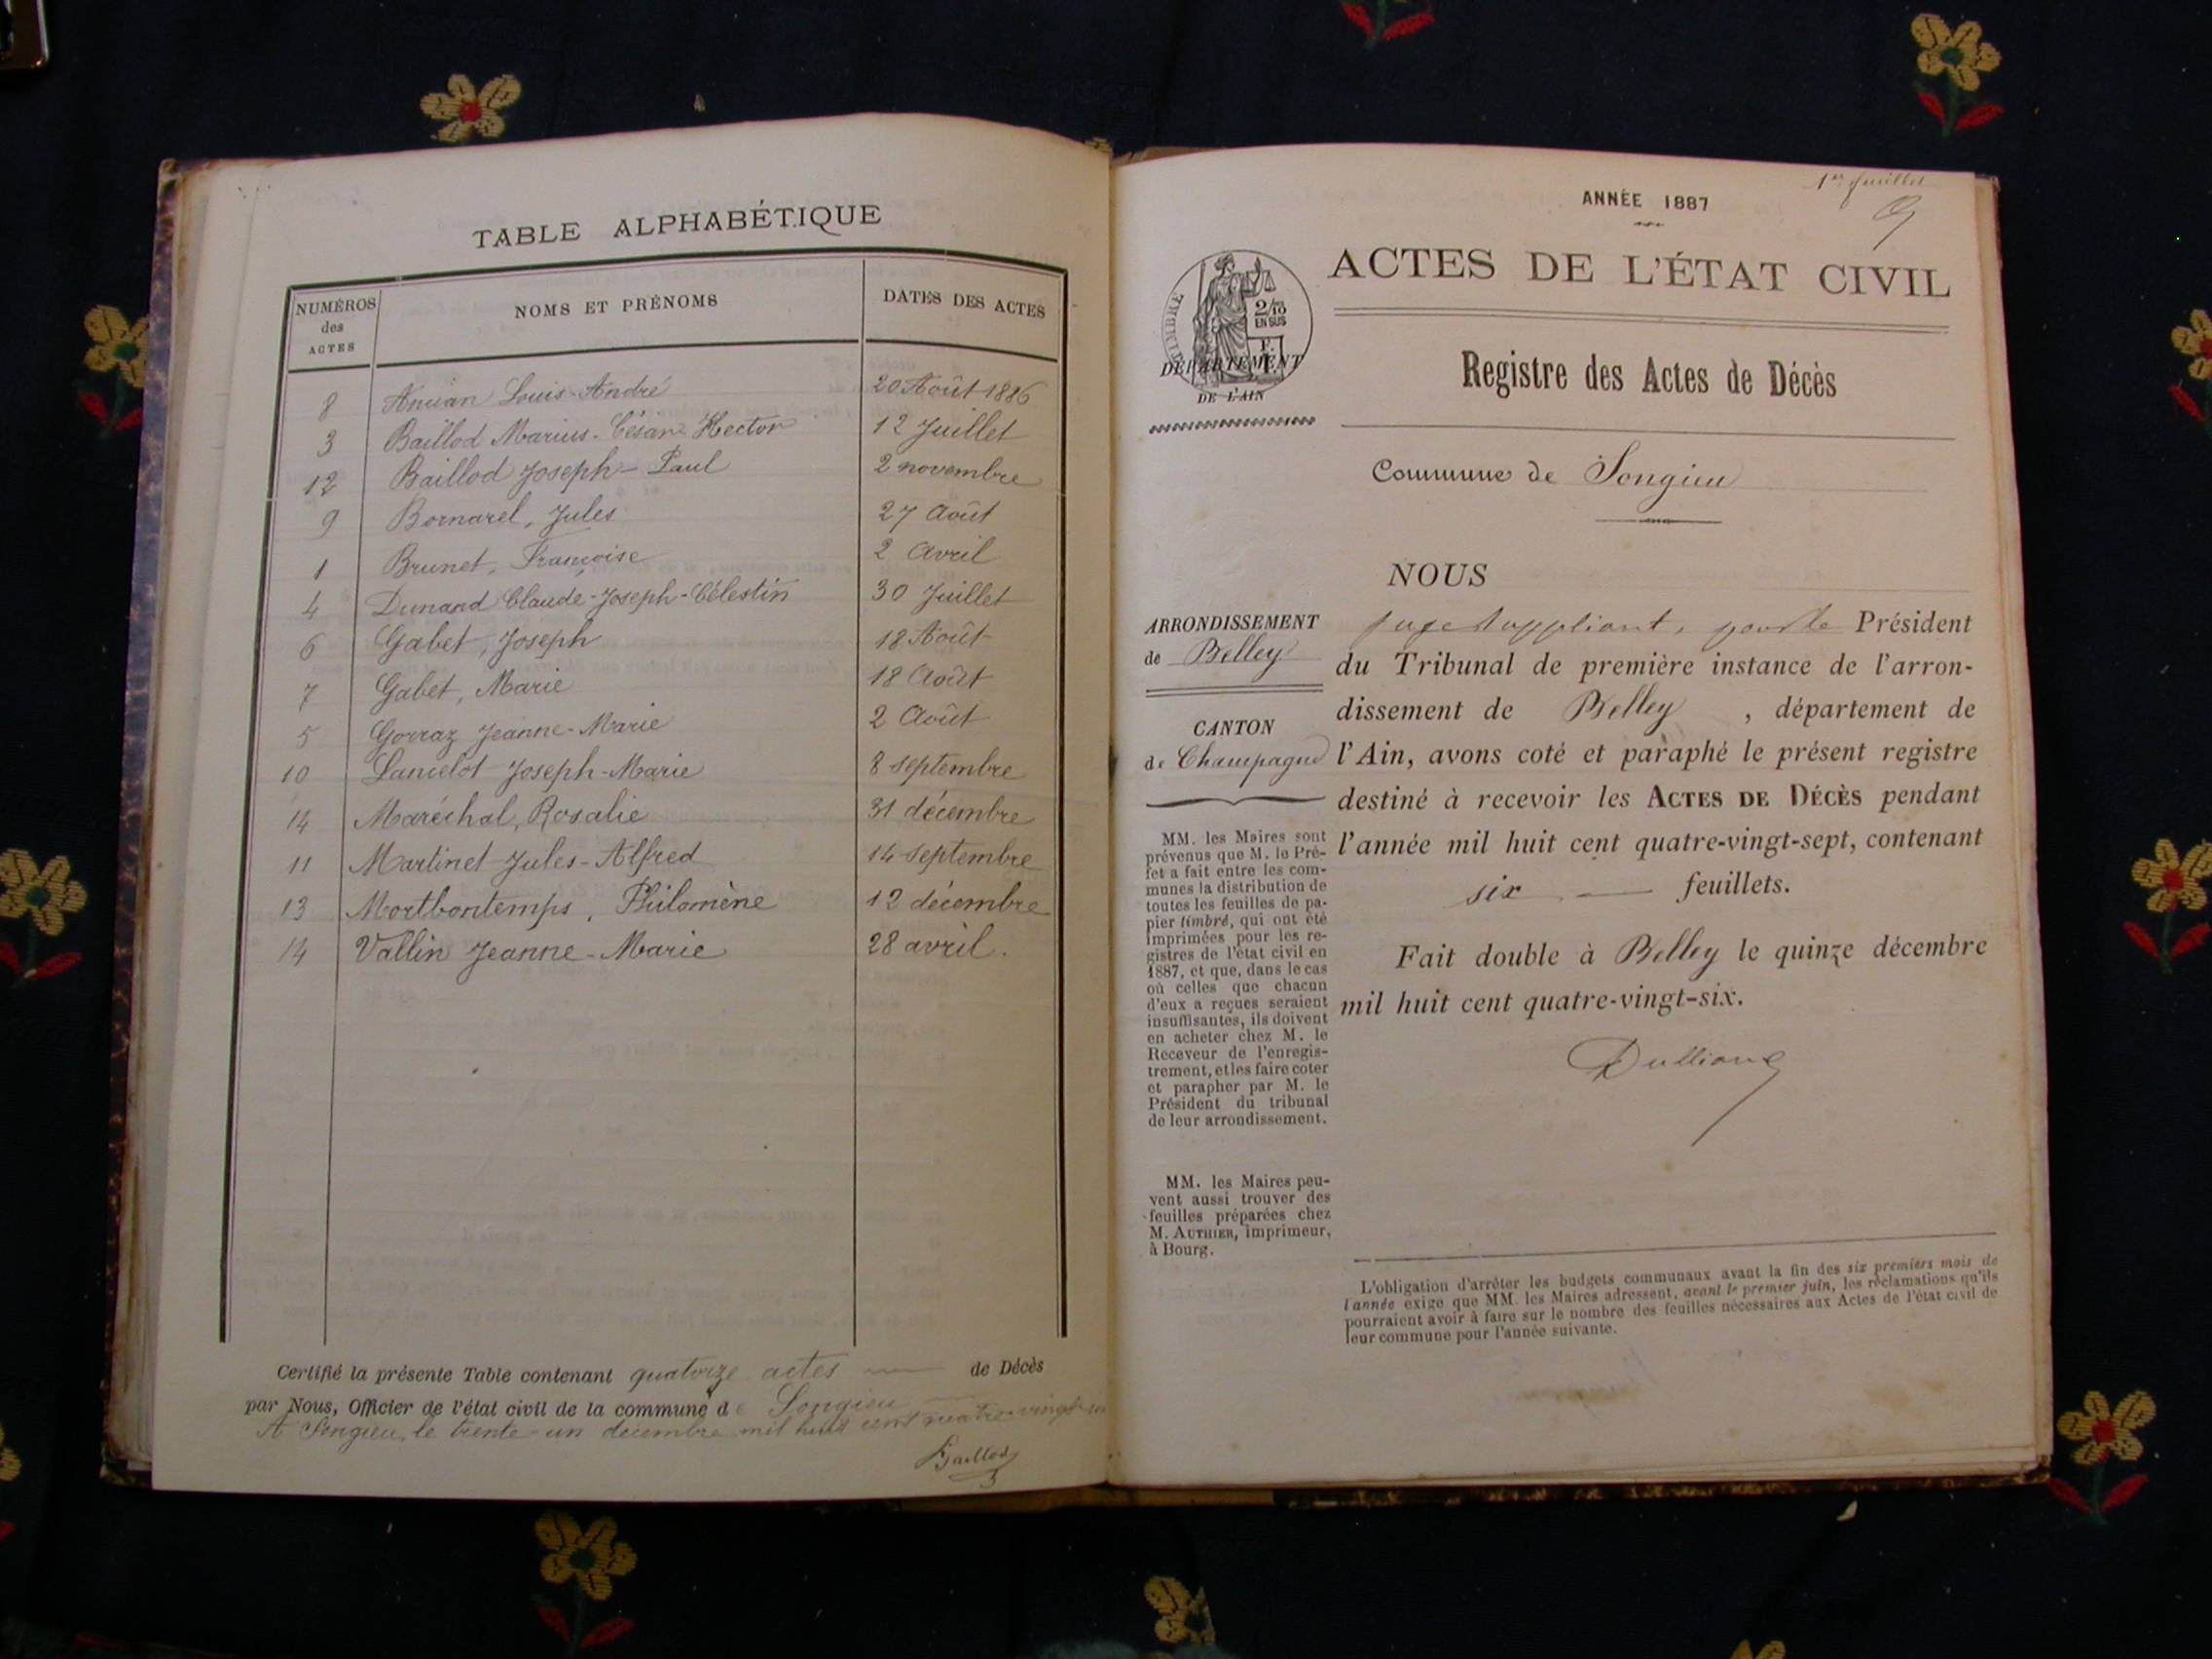 TABLE ALPHABÉTIQUE
NUMÉROS des ACTES NOMS ET PRÉNOMS DATES DES ACTES
8 Louis-André 20 Août 1886
3 Baillod Marius-César-Hector 12 Juillet
12 Baillod Joseph-Paul 2 novembre
9 Bornarel, Jules 27 Août
1 Brunet, Françoise 2 Avril
4 Dunand Claude-Joseph-Célestin 30 Juillet
6 Gabet, Joseph 18 Août
7 Gabet, Marie 18 Août
5 Gorraz Jeanne-Marie 2 Août
10 Lancelot Joseph-Marie 8 septembre
14 Maréchal, Rosalie 31 décembre
11 Martinet Jules-Alfred 14 septembre
13 Mortbontemps, Philomène 12 décembre
14 Vallin Jeanne-Marie 28 avril.
Certifié la présente Table contenant quatorze actes — de Décès
par Nous, Officier de l'état civil de la commune de Songieu
A Songieu, le trente-un décembre mil huit cent quatre-vingt-six
Baillod
1er feuillet
ANNÉE 1887
ACTES DE L'ÉTAT CIVIL
TIMBRE
2/10
EN SUS
DÉPARTEMENT
DE L'AIN
Registre des Actes de Décès
Commune de Songieu
NOUS
ARRONDISSEMENT
de Belley
CANTON
de Champagne
MM. les Maires sont
prévenus que M. le Pré-
fet a fait entre les com-
munes la distribution de
toutes les feuilles de pa-
pier timbré, qui ont été
imprimées pour les re-
gistres de l'état civil en
1887, et que, dans le cas
où celles que chacun
d'eux a reçues seraient
insuffisantes, ils doivent
en acheter chez M. le
Receveur de l'enregis-
trement, et les faire coter
et parapher par M. le
Président du tribunal
de leur arrondissement.
MM. les Maires peu-
vent aussi trouver des
feuilles préparées chez
M. AUTHIER, imprimeur,
à Bourg.
juge suppléant, pour le Président
du Tribunal de première instance de l'arron-
dissement de Belley, département de
l'Ain, avons coté et paraphé le présent registre
destiné à recevoir les ACTES DE DÉCÈS pendant
l'année mil huit cent quatre-vingt-sept, contenant
six — feuillets.
Fait double à Belley le quinze décembre
mil huit cent quatre-vingt-six.
L'obligation d'arrêter les budgets communaux avant la fin des six premiers mois de
l'année exige que MM. les Maires adressent, avant le premier juin, les réclamations qu'ils
pourraient avoir à faire sur le nombre des feuilles nécessaires aux Actes de l'état civil de
leur commune pour l'année suivante.